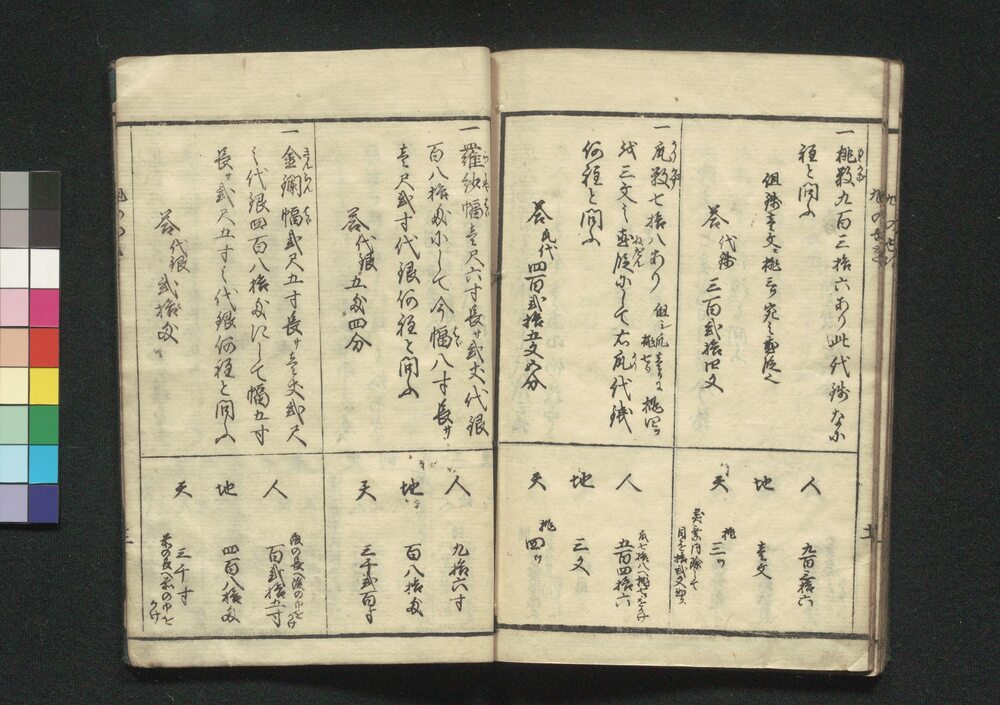 一桃数九百三拾六あり此代銭なに
程と問ふ
但銭壱文ニ桃三ツ宛之直段也
答 代銭 三百弐拾四文
人 九百三拾六
地 壱文
天 桃 三ツ
一瓜数七拾八あり 但シ瓜壱ツに桃七ツ 桃四ツ
代三文之直段にして右瓜代銭
何程と問ふ
答 瓜代 四百弐拾五文五分
瓜七拾八へ桃七をかけ
人 五百四拾六
地 三文
天 桃 四ツ
一羅紗幅壱尺六寸長サ弐丈代銀
百八拾匁にして今幅八寸長サ
壱尺弐寸代銀何程と問ふ
答 代銀 五匁四分
人 九拾六寸
地 百八拾匁
天 三千弐百寸
一金襴幅弐尺五寸長サ壱丈弐尺
之代銀四百八拾匁にして幅五寸
長サ弐尺五寸之代銀何程と問ふ
答 代銀 弐拾匁
後の長へ後の巾をかけ
人 百弐拾五寸
地 四百八拾匁
天 三千寸
前の長へ前の巾をかけ